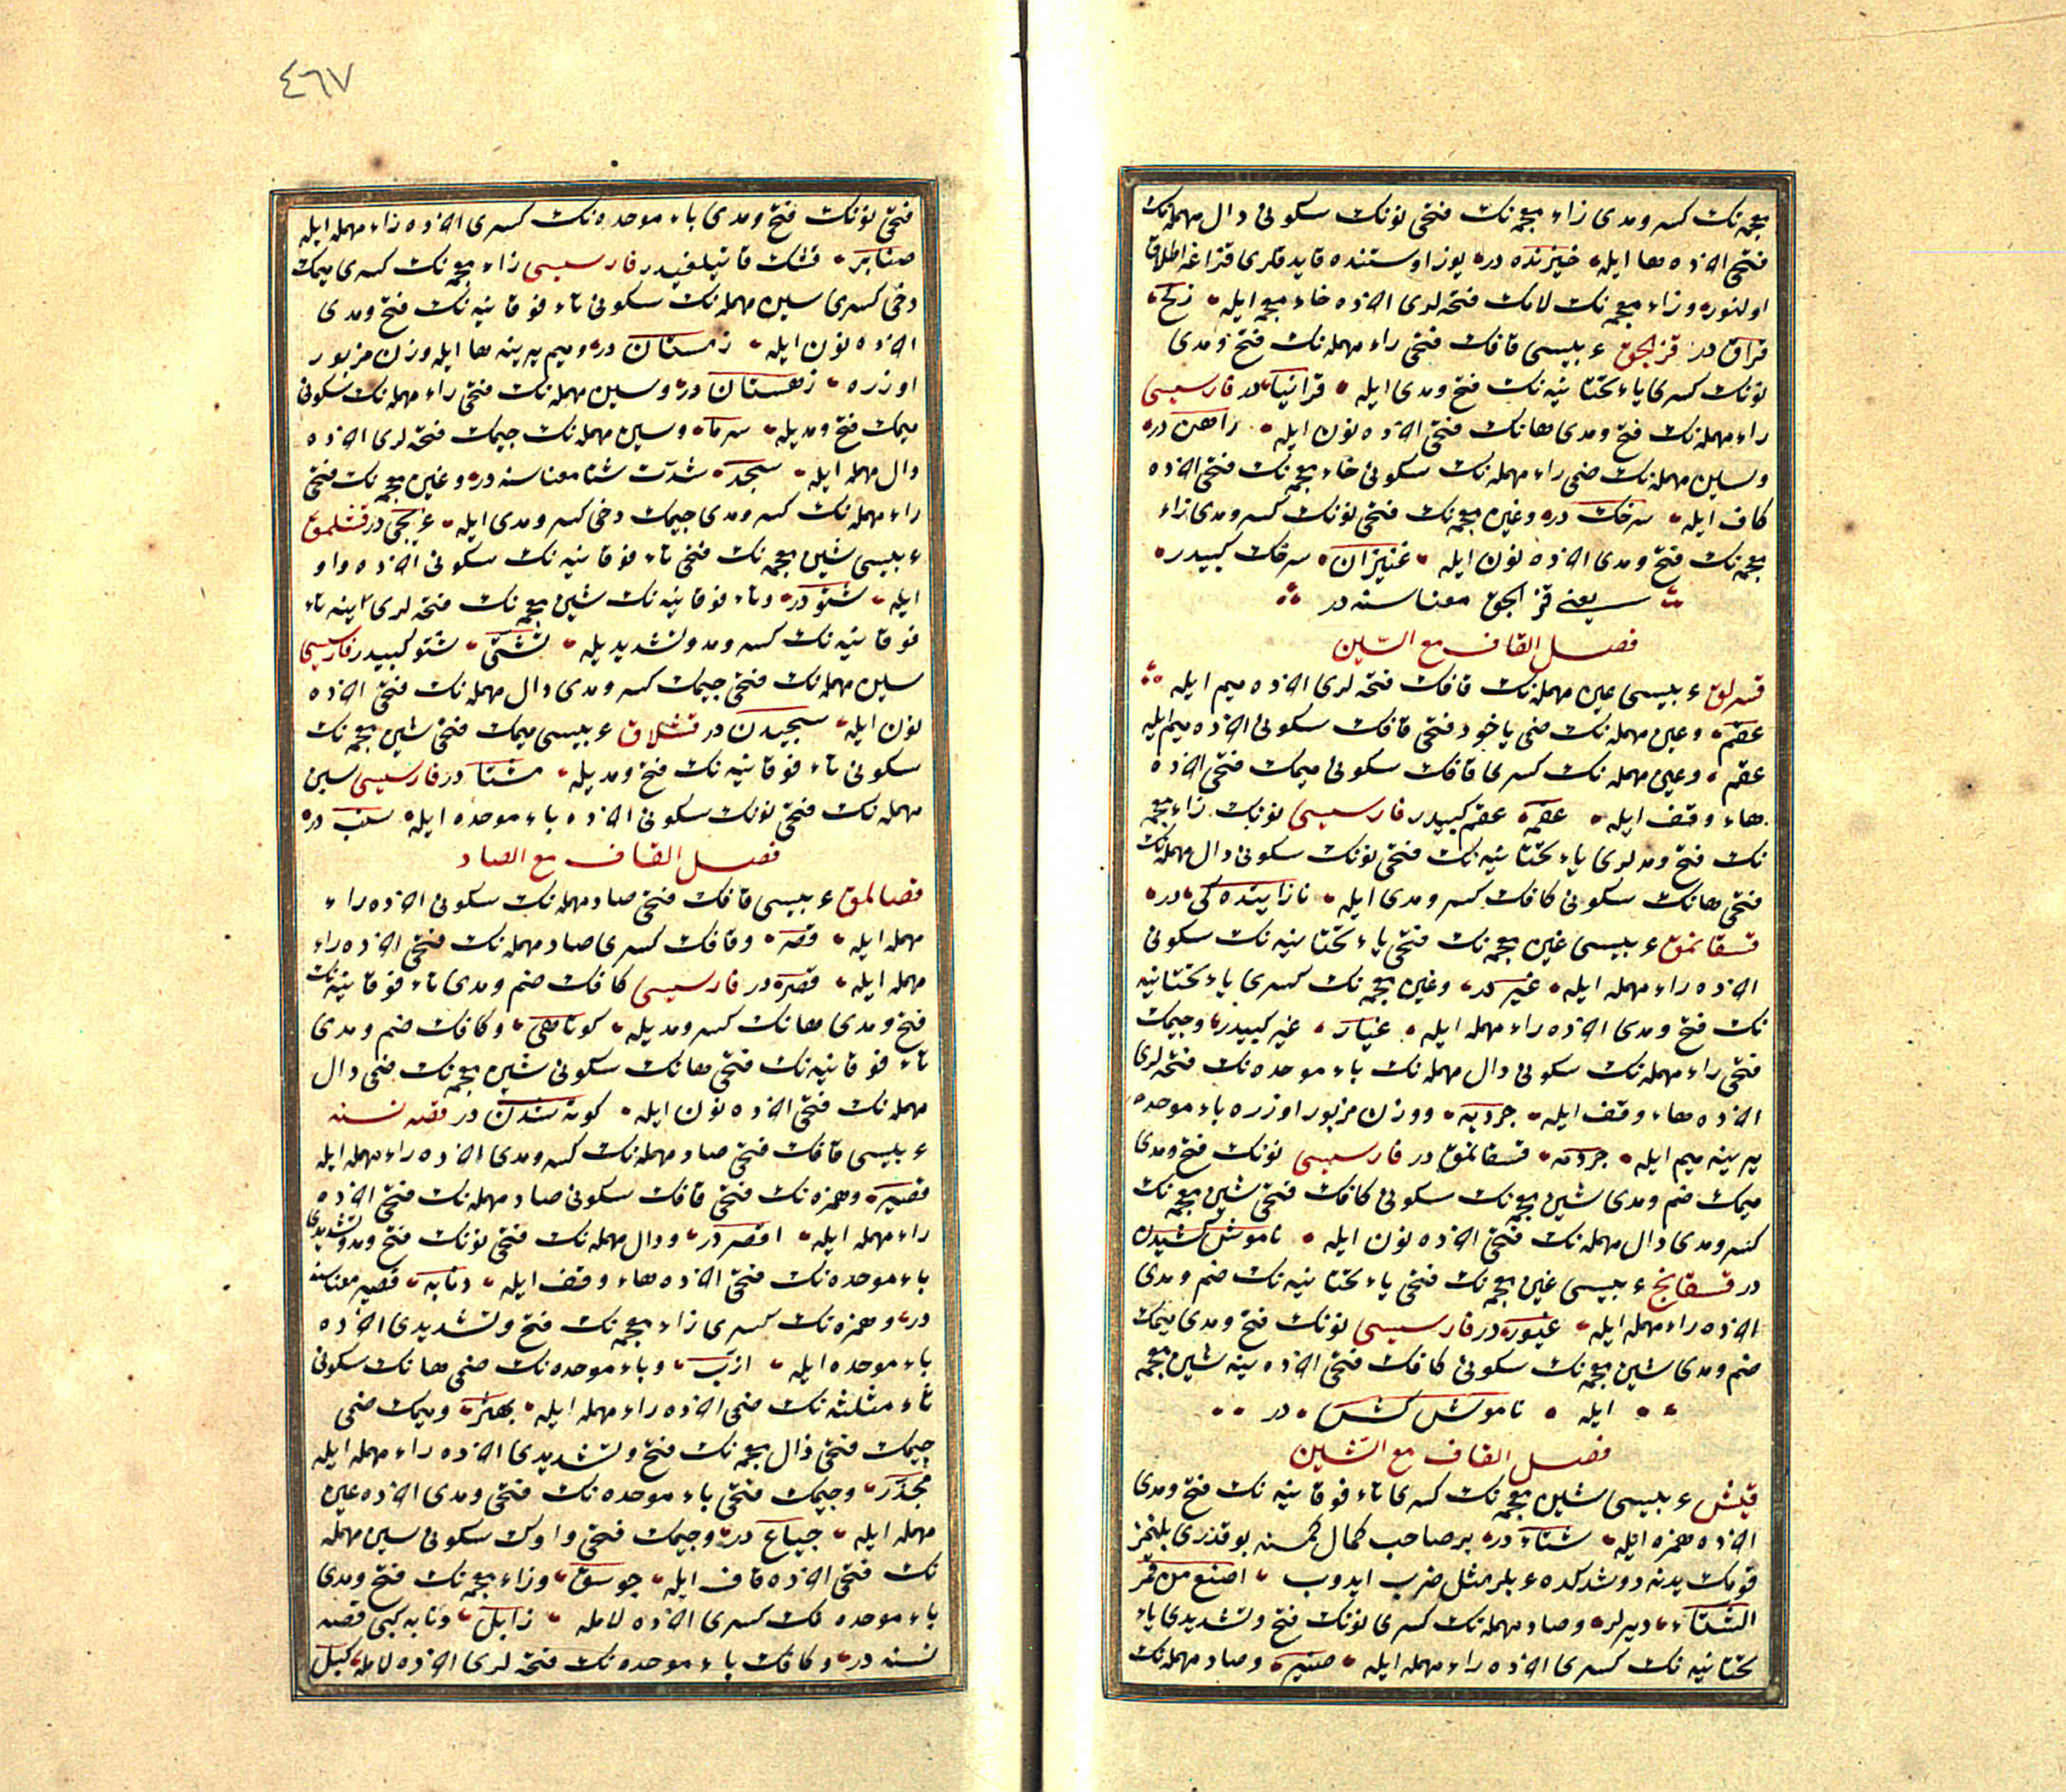 معجمه نك كسر و مدى زاء معجمه نك فتحى نونك سكونى دال مهمله نك
فتحى اخرده ها ايله خيزنده در يوز اوستنده قايدقلرى قزاغه اطلاق
اولنور و زاء معجمه نك لامك فتحه لرى اخرده خاء معجمه ايله زلخ
قزاق در قزلجق عربيسى قافك فتحى راء مهمله نك فتح و مدى
نونك كسرى ياء تحتانيه نك فتح و مدى ايله قرانيا در فارسيسى
راء مهمله نك فتح و مدى هانك فتحى اخرده نون ايله راهن در
و سين مهمله نك ضمى راء مهمله نك سكونى خاء معجمه نك فتحى اخرده
كاف ايله سرخك در و غين معجمه نك فتحى نونك كسر و مدى زاء
معجمه نك فتح و مدى اخرده نون ايله غنيزان سرخك كبيدر
يعنى قزلجق معناسنه در
فصل القاف مع السين
قسرلق عربيسى عين مهمله نك قافك فتحه لرى اخرده ميم ايله
عقم و عين مهمله نك ضمى ياخود فتحى قافك سكونى اخرده ميم ايله
عقم و عين مهمله نك كسرى قافك سكونى ميمك فتحى اخرده
هاء وقف ايله عقمه عقم كبيدر فارسيسى نونك زاء معجمه
نك فتح و مدلرى ياء تحتانيه نك فتحى نونك سكونى دال مهمله نك
فتحى هانك سكونى كافك كسر و مدى ايله نازاينده كى در
قسقانمق عربيسى غين معجمه نك فتحى ياء تحتانيه نك سكونى
اخرده راء مهمله ايله غير در و غين معجمه نك كسرى ياء تحتانيه
نك فتح و مدى اخرده راء مهمله ايله غيار غير كبيدر و جيمك
فتحى راء مهمله نك سكونى دال مهمله نك باء موحده نك فتحه لرى
اخرده هاء وقف ايله جردبه و وزن مزبور اوزره باء موحده
يرينه ميم ايله جردمه قسقانمق در فارسيسى نونك فتح و مدى
ميمك ضم و مدى شين معجمه نك سكونى كافك فتحى شين معجمه نك
كسر و مدى دال مهمله نك فتحى اخرده نون ايله ناموش كشيدن
در قسقانج عربيسى غين معجمه نك فتحى ياء تحتانيه نك ضم و مدى
اخرده راء مهمله ايله غيور در فارسيسى نونك فتح و مدى ميمك
ضم و مدى شين معجمه نك سكونى كافك فتحى اخرده ينه شين معجمه
ايله ناموش كش در
فصل القاف مع الشين
قيش عربيسى شين معجمه نك كسرى تاء فوقانيه نك فتح و مدى
اخرده همزه ايله شتاء در بر صاحب كمال كمسنه بو قدرى بلنمز
قومك يدنه دوشدكده عربلر مثل ضرب ايدوب اضيع من قمر
الشتاء ديرلر و صاد مهمله نك كسرى نونك فتح و تشديدى ياء
تحتانيه نك كسرى اخرده راء مهمله ايله صنبر و صاد مهمله نك
٤٦٧
فتحى نونك فتح و مدى باء موحده نك كسرى اخرده راء مهمله ايله
صنابر قشك قاتيلغيدر فارسيسى زاء معجمه نك كسرى ميمك
دخى كسرى سين مهمله نك سكونى تاء فوقانيه نك فتح و مدى
اخرده نون ايله زمستان در و ميم يرينه ها ايله وزن مزبور
اوزره زهستان در و سين مهمله نك فتحى راء مهمله نك سكونى
ميمك فتح و مديله سرما و سين مهمله نك جيمك فتحه لرى اخرده
دال مهمله ايله سجد شدت شتا معناسنه در و غين معجمه نك فتحى
راء مهمله نك كسر و مدى جيمك دخى كسر و مدى ايله غريجى در قشلمق
عربيسى شين معجمه نك فتحى تاء فوقانيه نك سكونى اخرده واو
ايله شتو در و تاء فوقانيه نك شين معجمه نك فتحه لرى ٢ ينه تاء
فوقانيه نك كسر و مد و تشديديله تشتى شتو كبيدر فارسيسى
سين مهمله نك فتحى جيمك كسر و مدى دال مهمله نك فتحى اخرده
نون ايله سجيدن در قشلاق عربيسى ميمك فتحى شين معجمه نك
سكونى تاء فوقانيه نك فتح و مديله مشتا در فارسيسى سين
مهمله نك فتحى نونك سكونى اخرده باء موحده ايله سنب در
فصل القاف مع الصاد
قصالمق عربيسى قافك فتحى صاد مهمله نك سكونى اخرده راء
مهمله ايله قصر و قافك كسرى صاد مهمله نك فتحى اخرده راء
مهمله ايله قصر در فارسيسى كافك ضم و مدى تاء فوقانيه نك
فتح و مدى هانك كسر و مديله كوتاهى و كافك ضم و مدى
تاء فوقانيه نك فتحى هانك سكونى شين معجمه نك ضمى دال
مهمله نك فتحى اخرده نون ايله كوته شدن در قصه نسنه
عربيسى قافك فتحى صاد مهمله نك كسر و مدى اخرده راء مهمله ايله
قصير و همزه نك فتحى قافك سكونى صاد مهمله نك فتحى اخرده
راء مهمله ايله اقصر در و دال مهمله نك فتحى نونك فتح و مد و تشديدى
باء موحده نك فتحى اخرده هاء وقف ايله دنابه قصير معناسنه
در و همزه نك كسرى زاء معجمه نك فتح و تشديدى اخرده
باء موحده ايله ازب و باء موحده نك ضمى هانك سكونى
ثاء مثلثه نك ضمى اخرده راء مهمله ايله بهثر و ميمك ضمى
جيمك فتحى ذال معجمه نك فتح و تشديدى اخرده راء مهمله ايله
مجذر و جيمك فتحى باء موحده نك فتحى و مدى اخرده عين
مهمله ايله جباع در و جيمك فتحى واوك سكونى سين مهمله
نك فتحى اخرده قاف ايله جوسق و زاء معجمه نك فتح و مدى
باء موحده نك كسرى اخرده لامله زابل دنابه كبى قصه
نسنه در و كافك باء موحده نك فتحه لرى اخرده لامله كبل